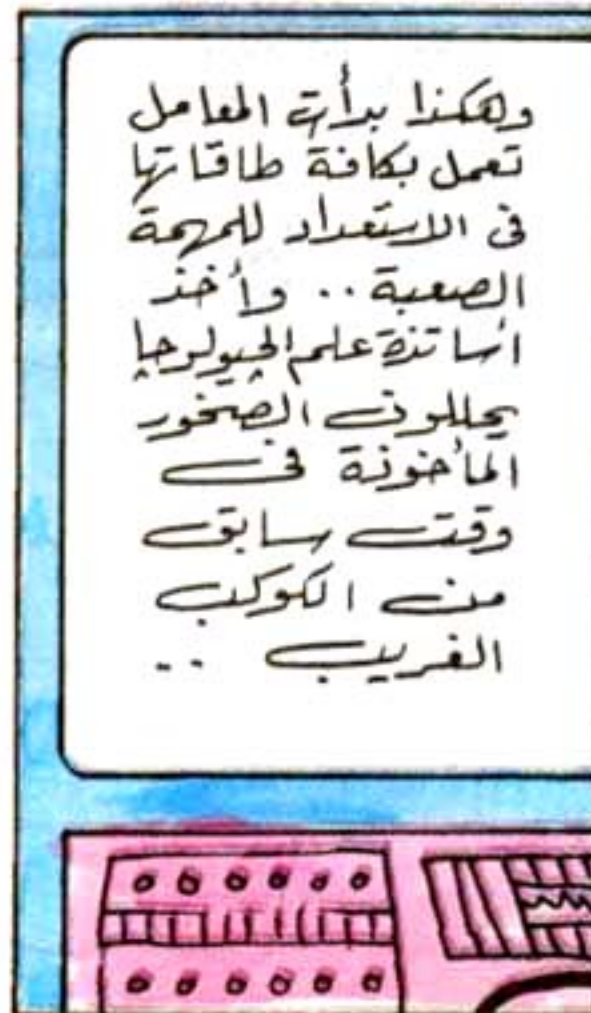 وهكذا بدأت المعامل
تعمل بكافة طاقاتها
فى الاستعداد للمهمة
الصعبة .. وأخذ
أساتذة علم الجيولوجيا
يحللون الصخور
المأخوذة فى
وقت سابق
من الكوكب
الغريب ..